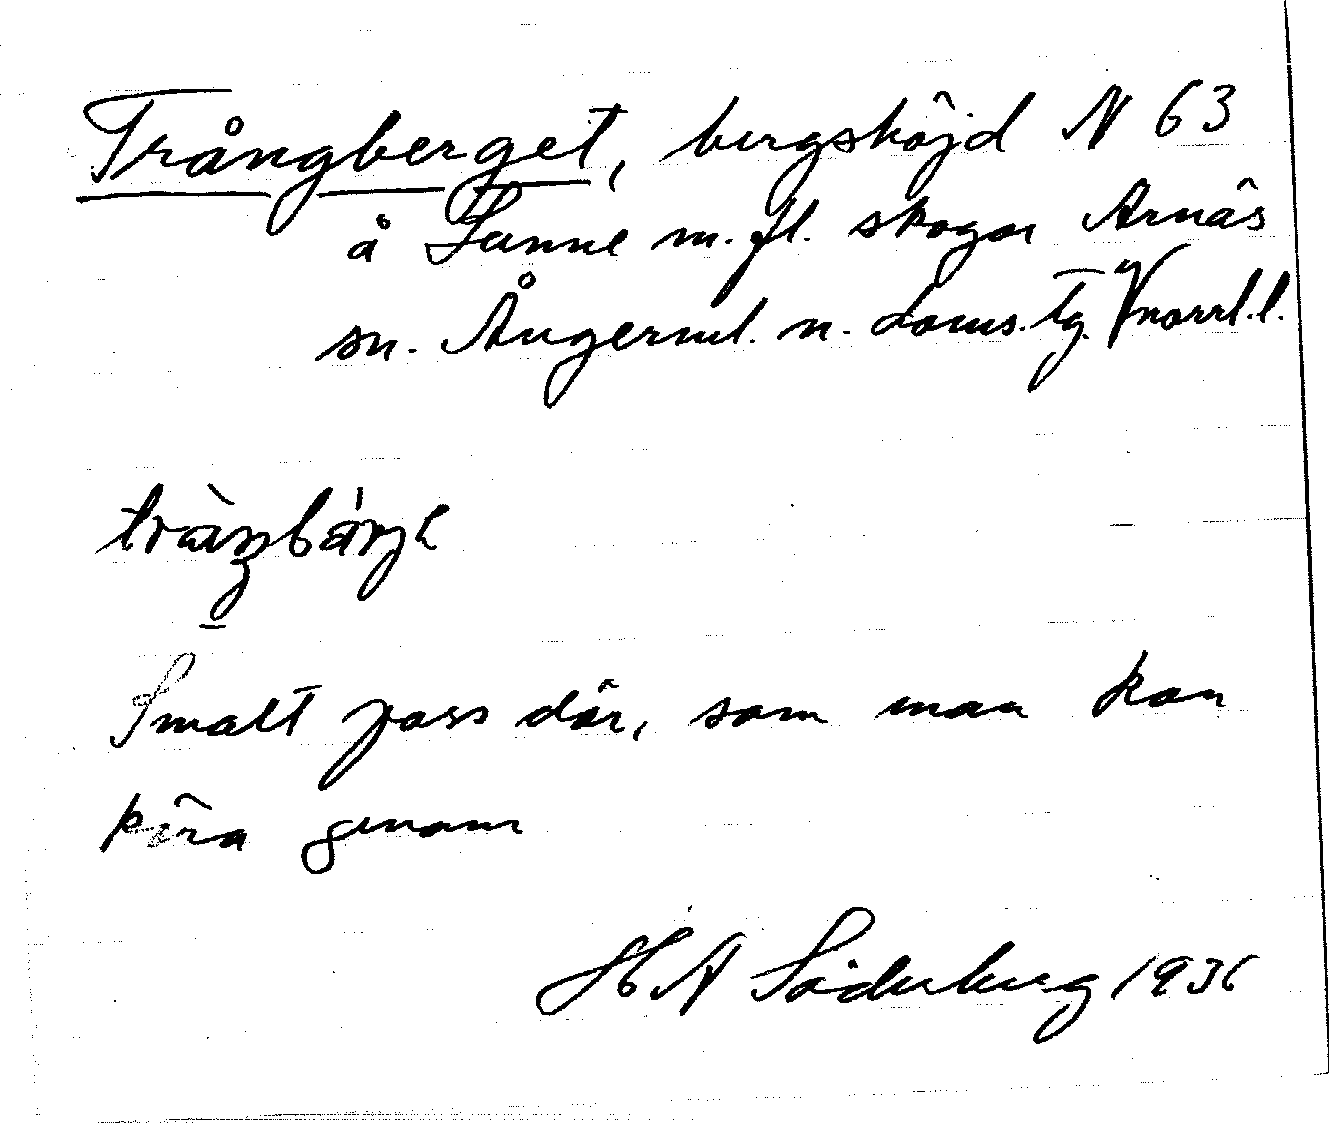 Trångberget, bergshöjd N 63
å Sunne m.fl. skogar Arnäs
sn. Ångerml. n. doms. tg. Vnorrl. l.
Smalt pass där, som man kan
köra genom
H A Söderberg 1936